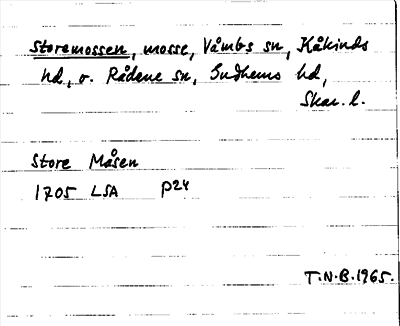 Storemossen, mosse, Våmbs sn, Kåkinds
hd, o. Rådene sn, Gudhems hd,
Skar. l.
Store Måsen
1705 LSA P24
T.N.B. 1965.